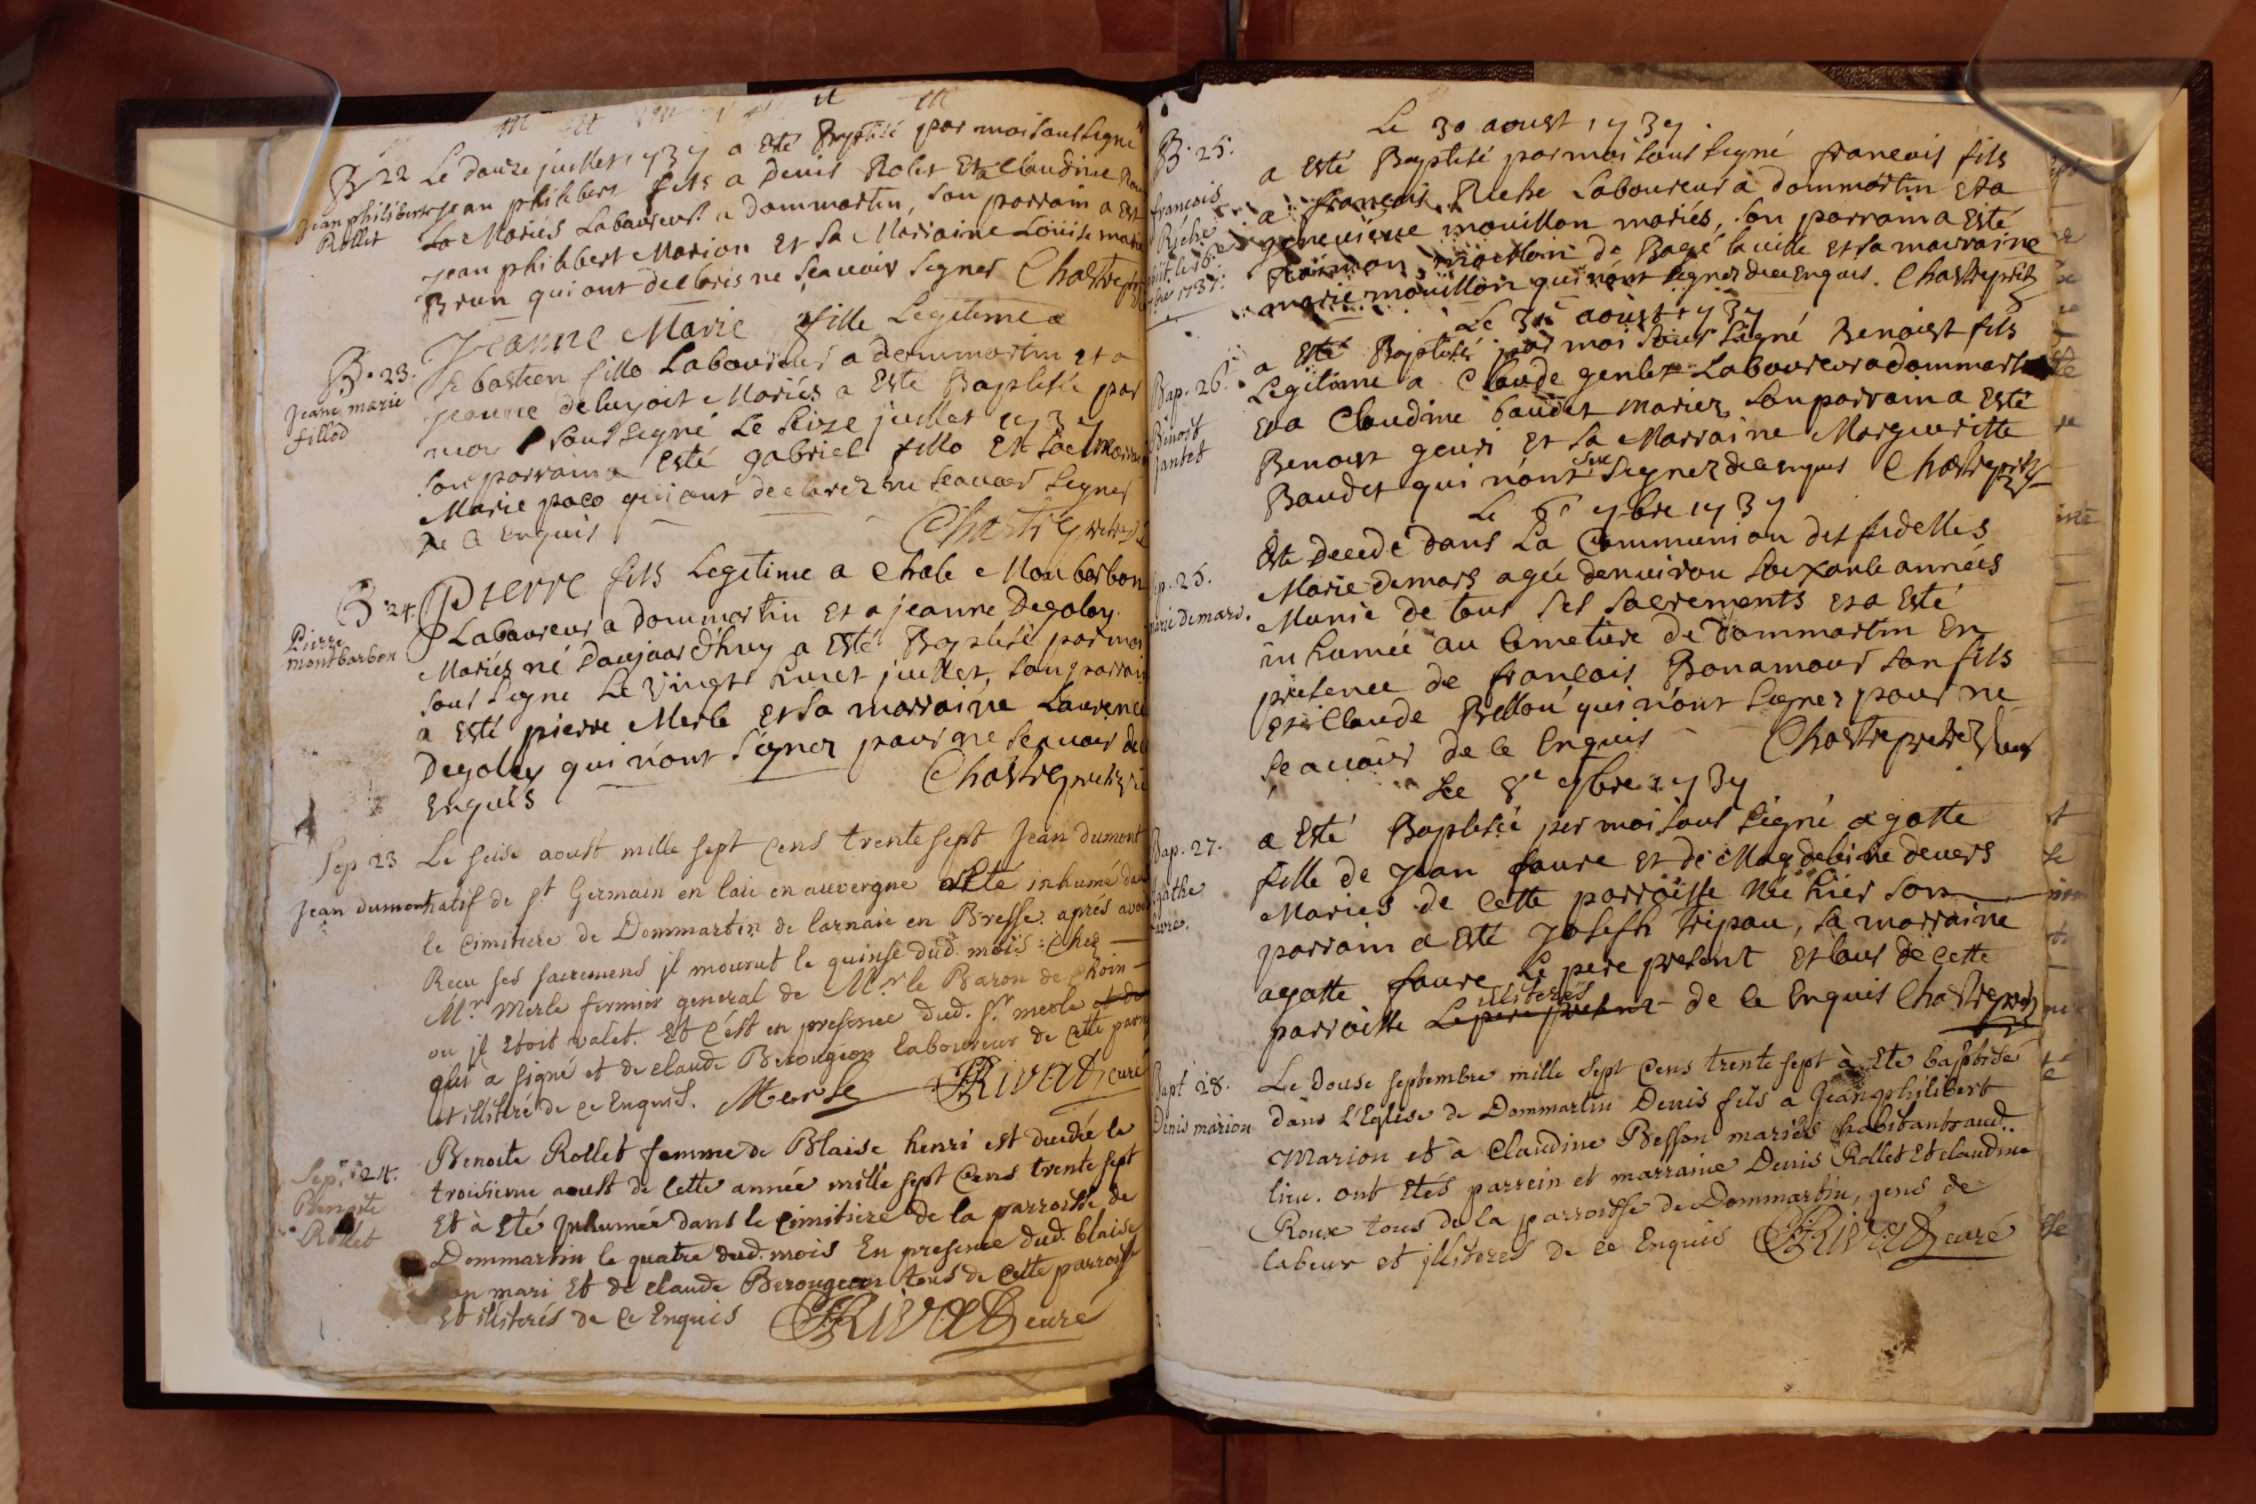 B 22
Jean philibert
Rollet
Le douze juillet 1737 a Esté Baptisé par moi sous signé
jean philibert fils a Denis Rolet Et a Claudine
Mariés Laboureurs a dommartin, son parrain a Est
jean philibert Marion et sa Marraine Loüise
Brun qui ont declaris ne sçauoir signer Chastre
B. 23.
Jeane marie
fillod
Jeanne Marie fille Legitime a
Sebastien fillo Laboureur a dommartin et a
jeanne delujoit Mariés a Esté Baptisée par
moi sous signé Le seize juillet 1737
son parrain a Esté gabriel fillo et sa
Marie paco qui ont declarez ne sçauoir signer
de ce enquis Chastre
B. 24.
Pierre
montbarbon
Pierre fils Legitime a Chale Monbarbon
Laboureur a dommartin et a jeanne Degoley
Mariés né Daujour d'huy a Esté Baptisé par moi
sous signé Le vingt huict juillet, son parrain
a Esté pierre Merle et sa marraine Laurence
Degoley qui n'ont signer pour ne sçauoir de
enquis Chastre
Sep 23
Jean dumont
Le seise aoust mille sept cens trente sept Jean dumont
natif de st Germain en laie en auvergne a Eté inhumé da
le cimitiere de Dommartin de larnaie en Bresse aprés avo
Recu ses sacremens jl mourut le quinse dud. mois : chez
Mr Merle fermier general de Mr le Baron de Choin
ou jl etoit valet. Et c'est en presence dud. sr merle et de
qui a signé et de claude Berougeon laboureur de cette
et illitéré de ce Enquis. Merle Rivat curé
Sep. 24.
Benoite
Rollet
Benoite Rollet femme de Blaise henri est decedée le
troisieme aoust de cette année mille sept cens trente sept
Et à eté Inhumée dans le cimitiere de la parroisse de
Dommartin le quatre dud. mois En presence dud. blaise
son mari Et de claude Berougeon tous de cette parroisse
Et illiterés de ce Enquis Rivat curé
Le 30 aoust 1737.
B. 25.
francois
Riche
a Esté Baptisé par moi sous signé francois fils
a françois Riche Laboureur a dommartin et a
geneuieue mouillon mariés, son parrain a Esté
de Bagé la uille et sa marraine
marie mouillon qui n'ont signez de ce enquis. Chastre
Le 31e aoust 1737
Bap. 26.
Benoit
jantet
a Esté Baptisé par moi sous signé Benoist fils
Legitime a Claude genlet Laboureur a dommartin
et a Claudine baudet mariez son parrain a Esté
Benoist geuri et sa Marraine Margueritte
Baudet qui n'ont sue signer de ce enquis Chastre
Le 6e 7bre 1737
p. 25.
marie demars.
Est Decedé dans La Communion des fidelles
Marie demars agée denuiron soixante années
Munie de tous ses sacrements et a Esté
inhumée au cimetiere de Dommartin En
presence de françois Bonamour son fils
et Claude Bellou qui n'ont signer pour ne
sçauoir de ce Enquis Chastre
Le 8e 7bre 1737
Bap. 27.
agathe
faure.
a Esté Baptisée par moi sous signé agatte
fille de Jean faure et de Magdeleine deuers
Mariés de cette parroisse née hier son
parrain a Esté Joseph Tripau, sa marraine
agatte faure Le pere present et tous de cette
parroisse illiterés Le pere present de ce Enquis Chastre
Bapt 28.
Denis marion
Le douse septembre mille sept cens trente sept à Eté baptisé
dans l'Eglise de Dommartin Denis fils a Jean philibert
Marion et à Claudine Besson mariés habitants aud.
lieu. ont Etés parrein et marraine Denis Rollet Et claudine
Roux tous de la parroisse de Dommartin, gens de
labeur et jlliterés de ce Enquis Rivat curé